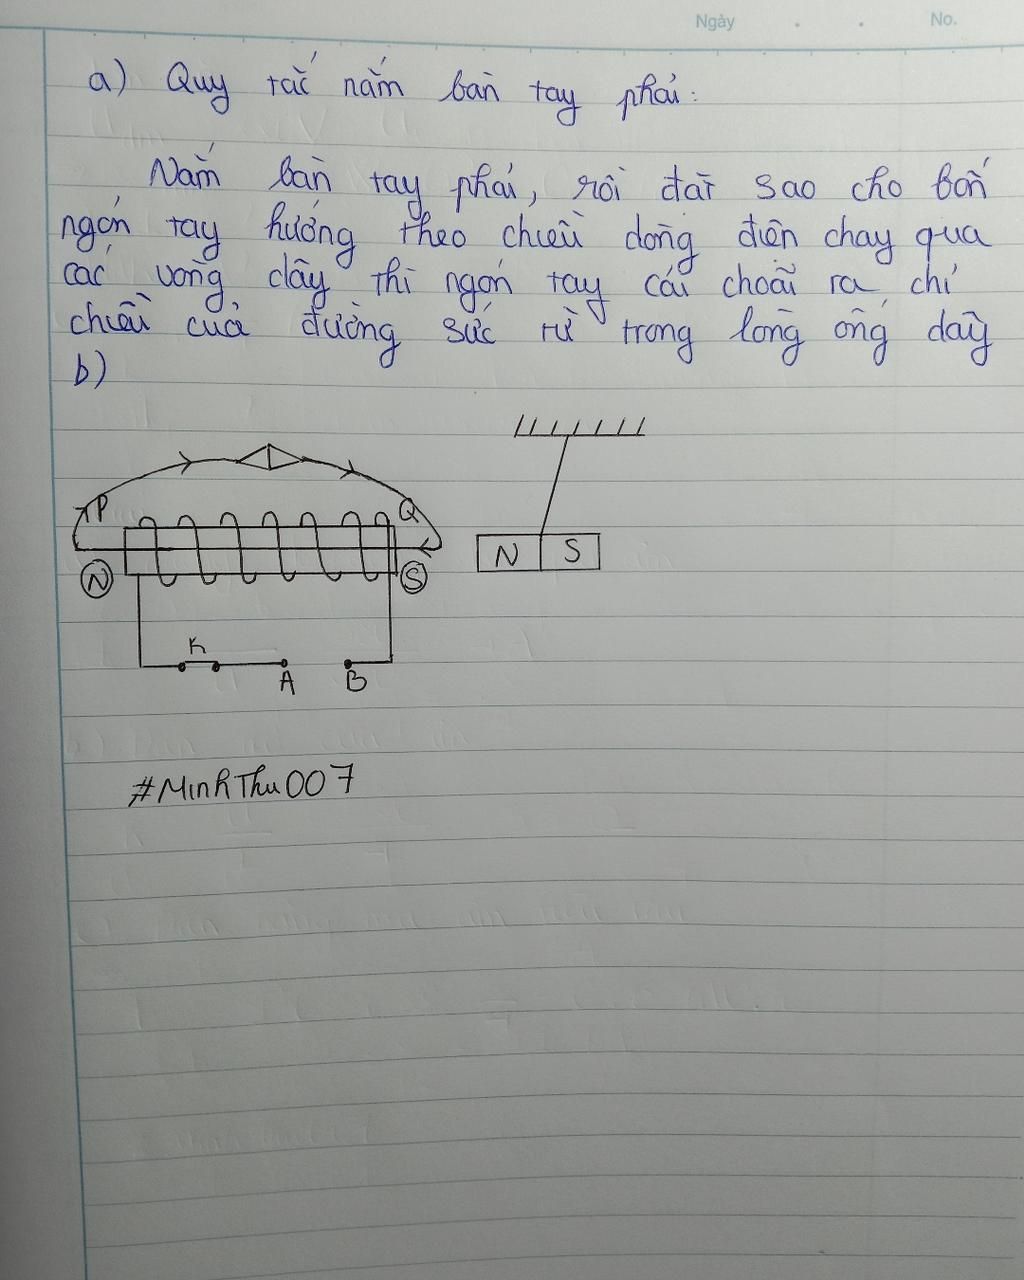 Ngày . . No.
a) Quy tắc nắm bàn tay phải:
Nắm bàn tay phải, rồi đặt sao cho bốn
ngón tay hướng theo chiều dòng điện chạy qua
các vòng dây thì ngón tay cái choãi ra chỉ
chiều của đường sức từ trong lòng ống dây
b)
P Q
N S
N S
K
A B
#MinhThu007